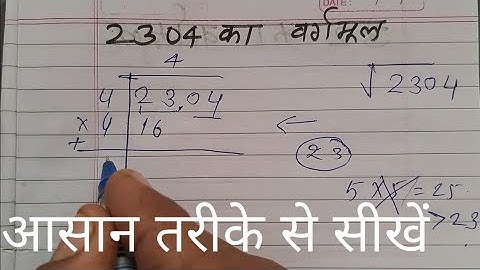 DATE:
2304 का वर्गमूल
4
4 23.04
× 4 16
+
√2304
23
5 × 5 = 25
> 23
आसान तरीके से सीखें